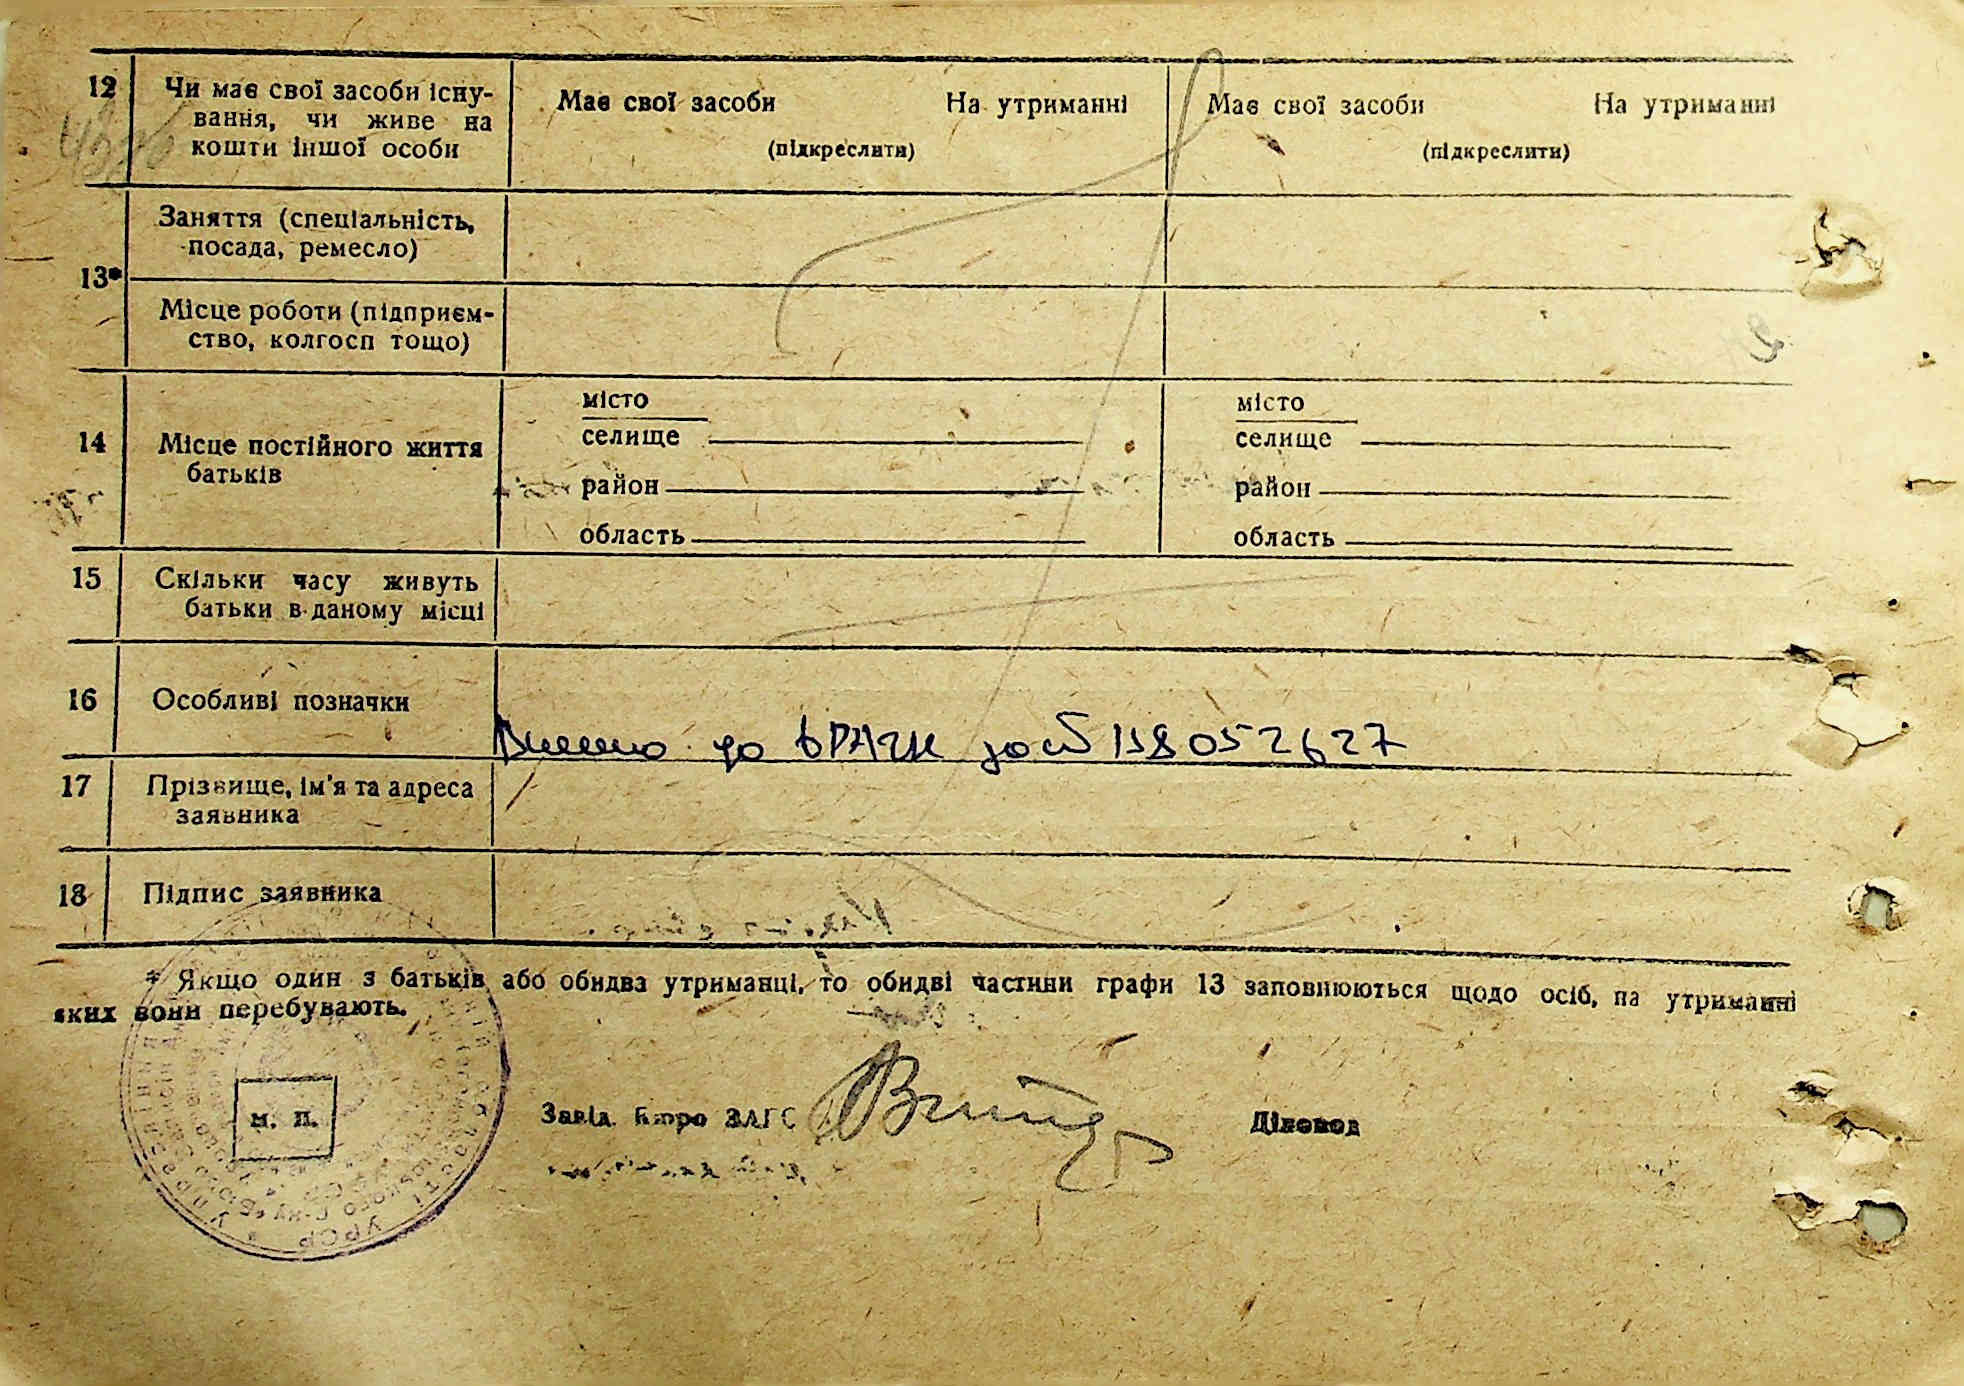 12
Чи має свої засоби існу-
вання, чи живе на
кошти іншої особи
Має свої засоби На утриманні
(підкреслити)
Має свої засоби На утриманні
(підкреслити)
13*
Заняття (спеціальність,
посада, ремесло)
Місце роботи (підприєм-
ство, колгосп тощо)
14
Місце постійного життя
батьків
місто
селище
район
область
місто
селище
район
область
15
Скільки часу живуть
батьки в даному місці
16
Особливі позначки
до 052627
17
Прізвище, ім'я та адреса
заявника
18
Підпис заявника
* Якщо один з батьків або обидва утриманці, то обидві частини графи 13 заповнюються щодо осіб, на утриманні
яких вони перебувають.
м. п.
Завід. Бюро ЗАГС
Діловод
УРСР